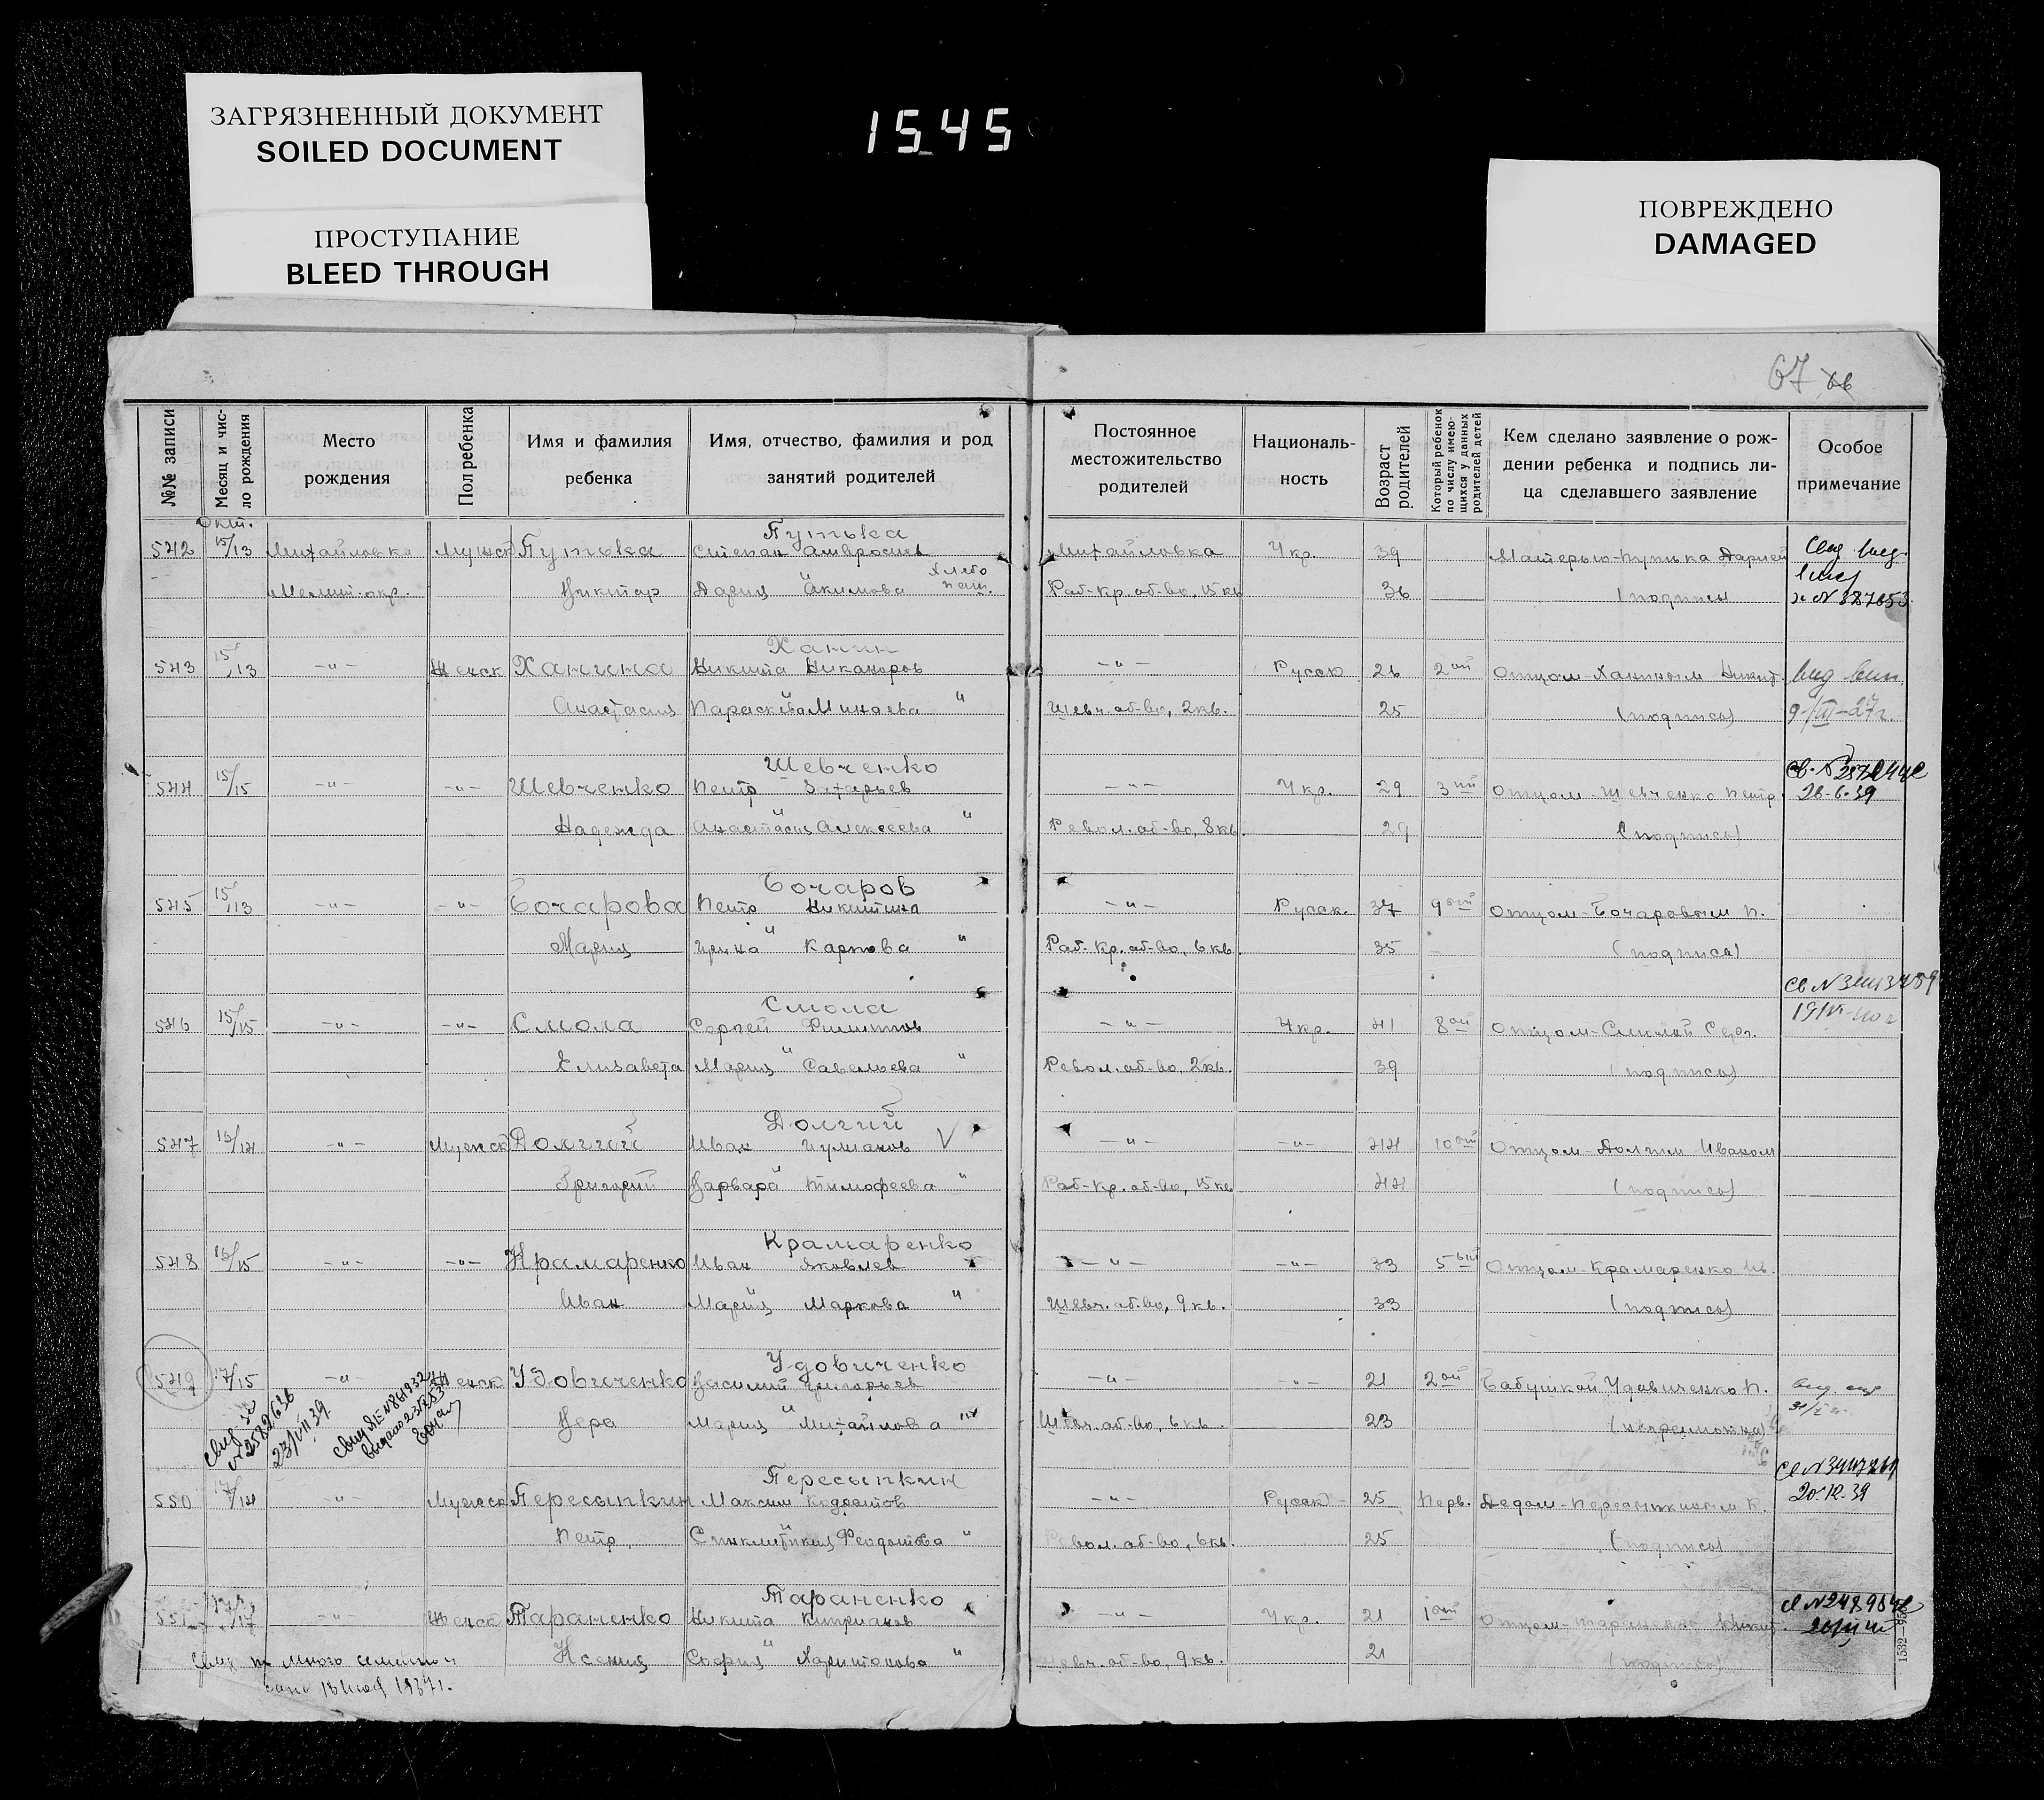 ЗАГРЯЗНЕННЫЙ ДОКУМЕНТ
SOILED DOCUMENT
ПРОСТУПАНИЕ
BLEED THROUGH
1545
ПОВРЕЖДЕНО
DAMAGED
67
№№ записи
Месяц и число рождения
Место рождения
Пол ребенка
Имя и фамилия ребенка
Имя, отчество, фамилия и род занятий родителей
Постоянное местожительство родителей
Националь-ность
Возраст родителей
Который ребенок по числу имею-щихся у данных родителей детей
Кем сделано заявление о рож-дении ребенка и подпись ли-ца сделавшего заявление
Особое примечание
Окт.
Путька
542 15/13 Михайловка Мужск Путька Степан Амвросиев Михайловка Укр. 39 Матерью-Путька Дарией
Мелит. окр. Дария " Акимова Раб-Кр. об-во, 15 кв 36 (подпись) № 387653
Ханин
543 15/13 -"- Женск Ханина Никита Никаноров -"- Русск 26 2ой Отцом Ханиным Никит.
Анастасия Параскева Минаева " Шевч. об-во, 2 кв. 25 (подпись) 9/III-27г.
Шевченко
544 15/15 -"- -"- Шевченко Петр Захарьев -"- Укр. 29 3ий Отцом-Шевченко Петр. 26-6-39
Надежда Анастасия Алексеева " Револ. об-во, 8 кв 29 (подпись)
Бочаров
545 15/13 -"- -"- Бочарова Петр Никитина -"- Русск. 37 9ый Отцом-Бочаровым П.
Мария Ирина " Карпова " Раб-Кр. об-во, 6 кв. 35 (подпись)
Смола
546 15/15 -"- -"- Смола Сергей Филиппов -"- Укр. 41 8ой Отцом-Смолой Серг.
Елизавета Мария " Савельева " Револ. об-во, 2 кв. 39 (подпись)
Долгий
547 16/14 -"- Мужск Долгий Иван -"- -"- 44 10ый Отцом-Долгим Иваном
Григорий Варвара " Тимофеева " Раб-Кр. об-во, 15 кв 44 (подпись)
Крамаренко
548 16/15 -"- -"- Крамаренко Иван Яковлев -"- -"- 33 5ый Отцом-Крамаренко Ив.
Иван Мария " Маркова " Шевч. об-во, 9 кв. 33 (подпись)
Удовиченко
549 17/15 -"- Женск Удовиченко Василий Григорьев -"- -"- 21 2ой Бабушкой Удовиченко П.
Вера Мария " Михайлова " Шевч. об-во, 6 кв. 23 (неграмотна)
№ 2582636
23/VII 39
Пересыпкин
550 17/14 -"- Мужск Пересыпкин Максим Кодратов -"- Русск 25 Перв. Дедом-Пересыпкиным К. 20-12-39
Петр Синклитикия Феодотова " Револ. об-во, 6 кв. 25 (подпись)
Тараненко
551 17/17 -"- Женск Тараненко Никита Киприанов -"- Укр. 21 1ый Отцом-Тараненко Никит.
Ксения София " Харитонова " Шевч. об-во, 9 кв. 21 (подпись)
1532—95